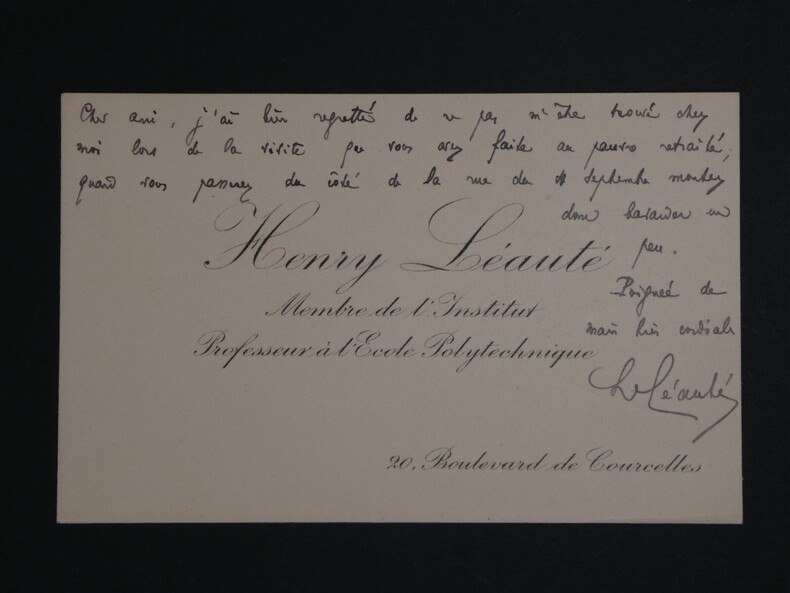 Cher ami, j'ai bien regretté de ne pas m'être trouvé chez
moi lors de la visite que vous avez faite au pauvre retraité,
quand vous passerez du côté de la rue du 4 Septembre montez
donc bavarder un
peu.
Henry Léauté
Poignée de
Membre de l'Institut
main bien cordiale
Professeur à l'Ecole Polytechnique
H Léauté
20, Boulevard de Courcelles